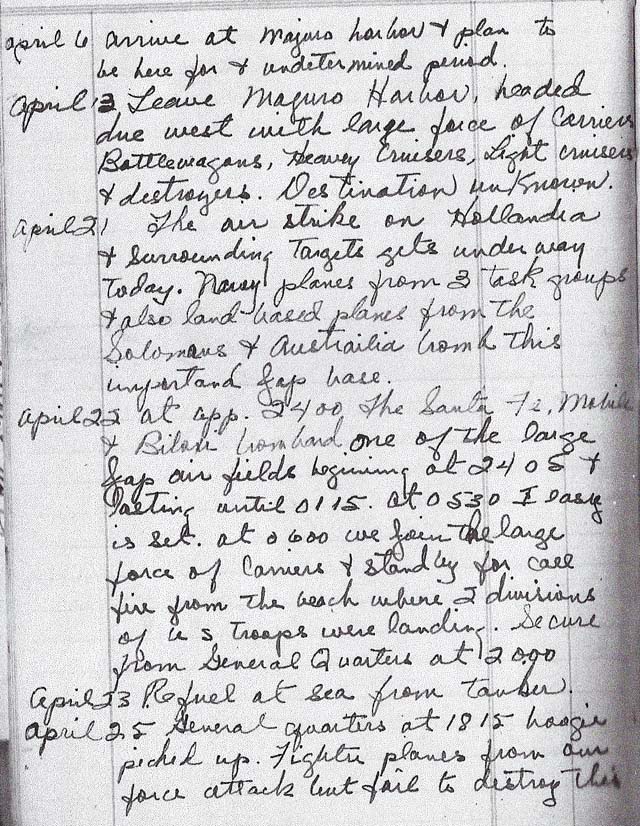 april 6 arrive at Majuro harbor & plan to
be here for & undetermined period.
april 13 Leave Maguro Harbor, headed
due west with large force of Carriers
Battlewagons, Heavey Cruisers, Light cruisers
& destroyers. Destination unknown.
april 21 The air strike on Hollandia
& surrounding Targets gets under way
today. Navy planes from 3 task groups
& also land-based planes from the
Solomans & Austrailia bomb this
important Jap base.
april 22 at app. 2400 The Santa Fe, Mobile
& Biloxi bombard one of the large
Jap air fields begining at 2405 &
lasting until 0115. at 0530 I easy
is set. at 0600 we join the large
force of Carriers & stand by for call
fire from the beach where 2 divisions
of U S Troops were landing. Secure
from General Quarters at 2000
April 23 Refuel at sea from tanker.
April 25 General quarters at 1815 boogie
picked up. Fighter planes from our
force attack but fail to destroy this